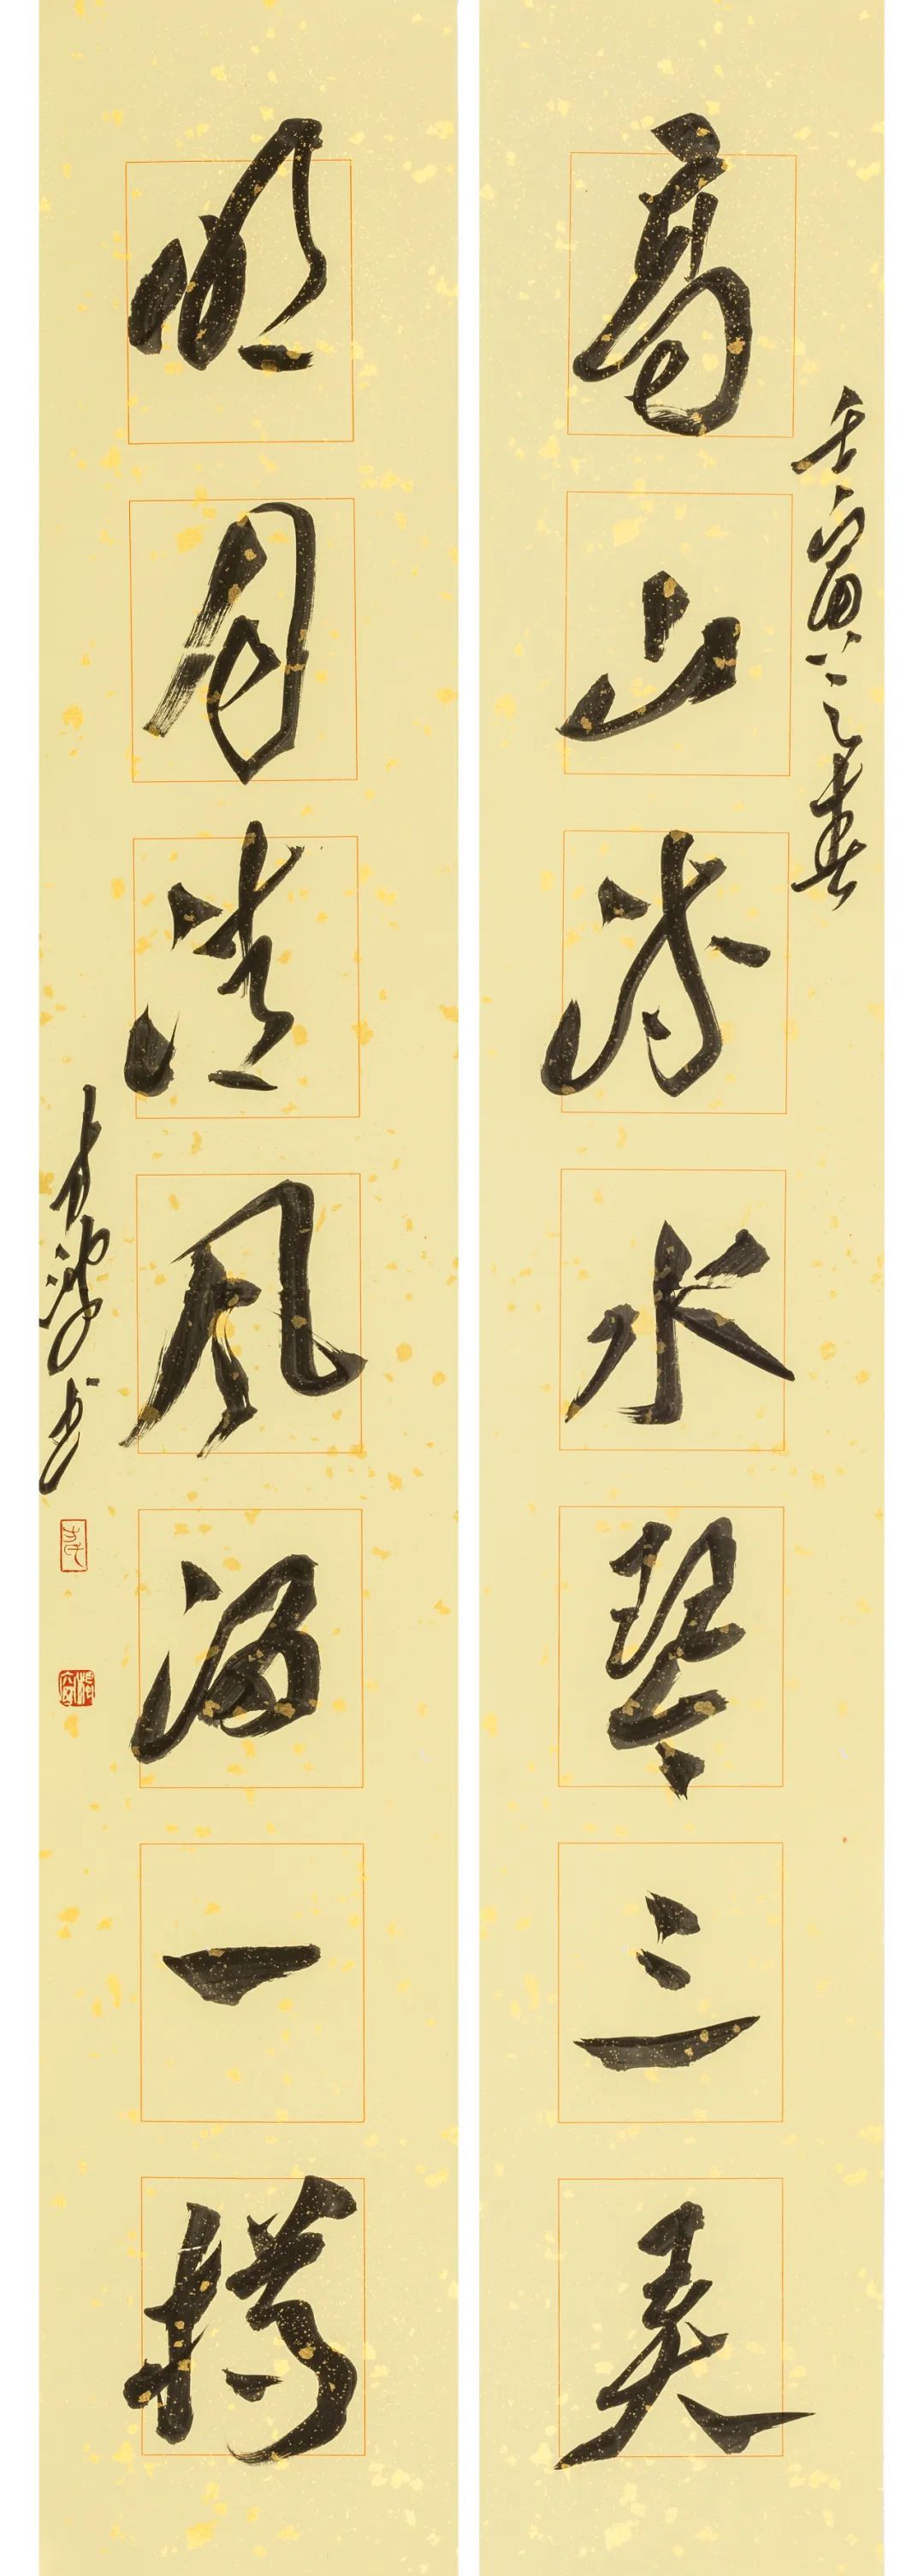 壬寅之春
高山流水琴三弄
明月清风酒一樽
书